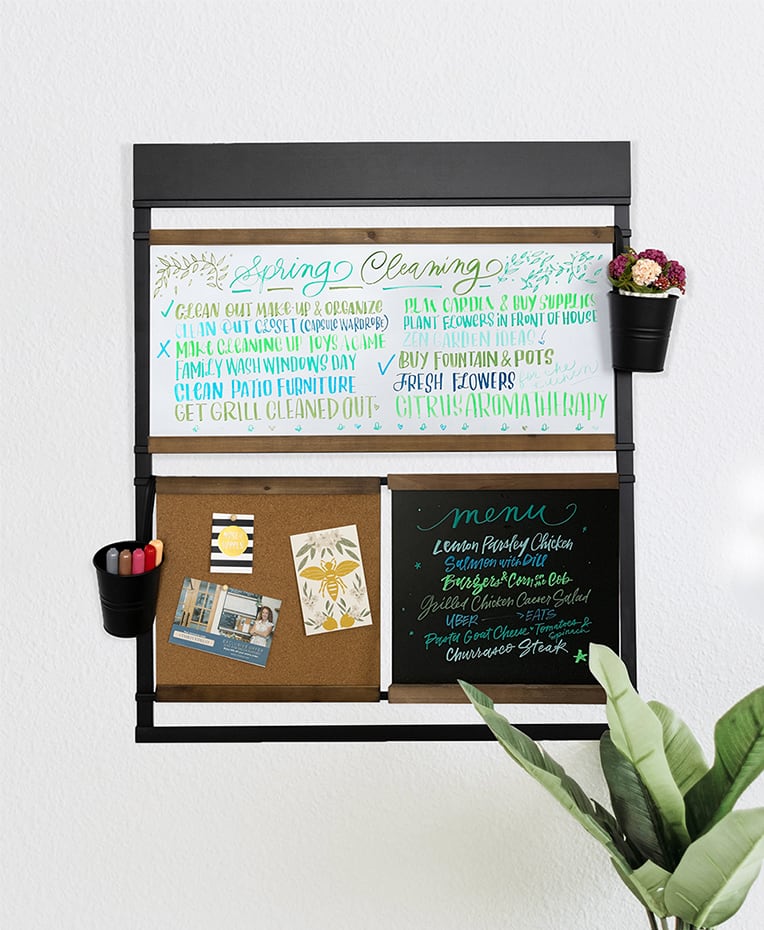 Spring Cleaning
✓ CLEAN OUT MAKE-UP & ORGANIZE
CLEAN OUT CLOSET (CAPSULE WARDROBE)
X MAKE CLEANING UP TOYS A GAME
FAMILY WASH WINDOWS DAY
CLEAN PATIO FURNITURE
GET GRILL CLEANED OUT
PLAN GARDEN & BUY SUPPLIES
PLANT FLOWERS IN FRONT OF HOUSE
ZEN GARDEN IDEAS
✓ BUY FOUNTAIN & POTS
FRESH FLOWERS for the
CITRUS AROMATHERAPY
menu
Lemon Parsley Chicken
Salmon with Dill
Burgers & Corn on the Cob
Grilled Chicken Caesar Salad
UBER → EATS
Pasta Goat Cheese + Tomatoes & Spinach
Churrasco Steak